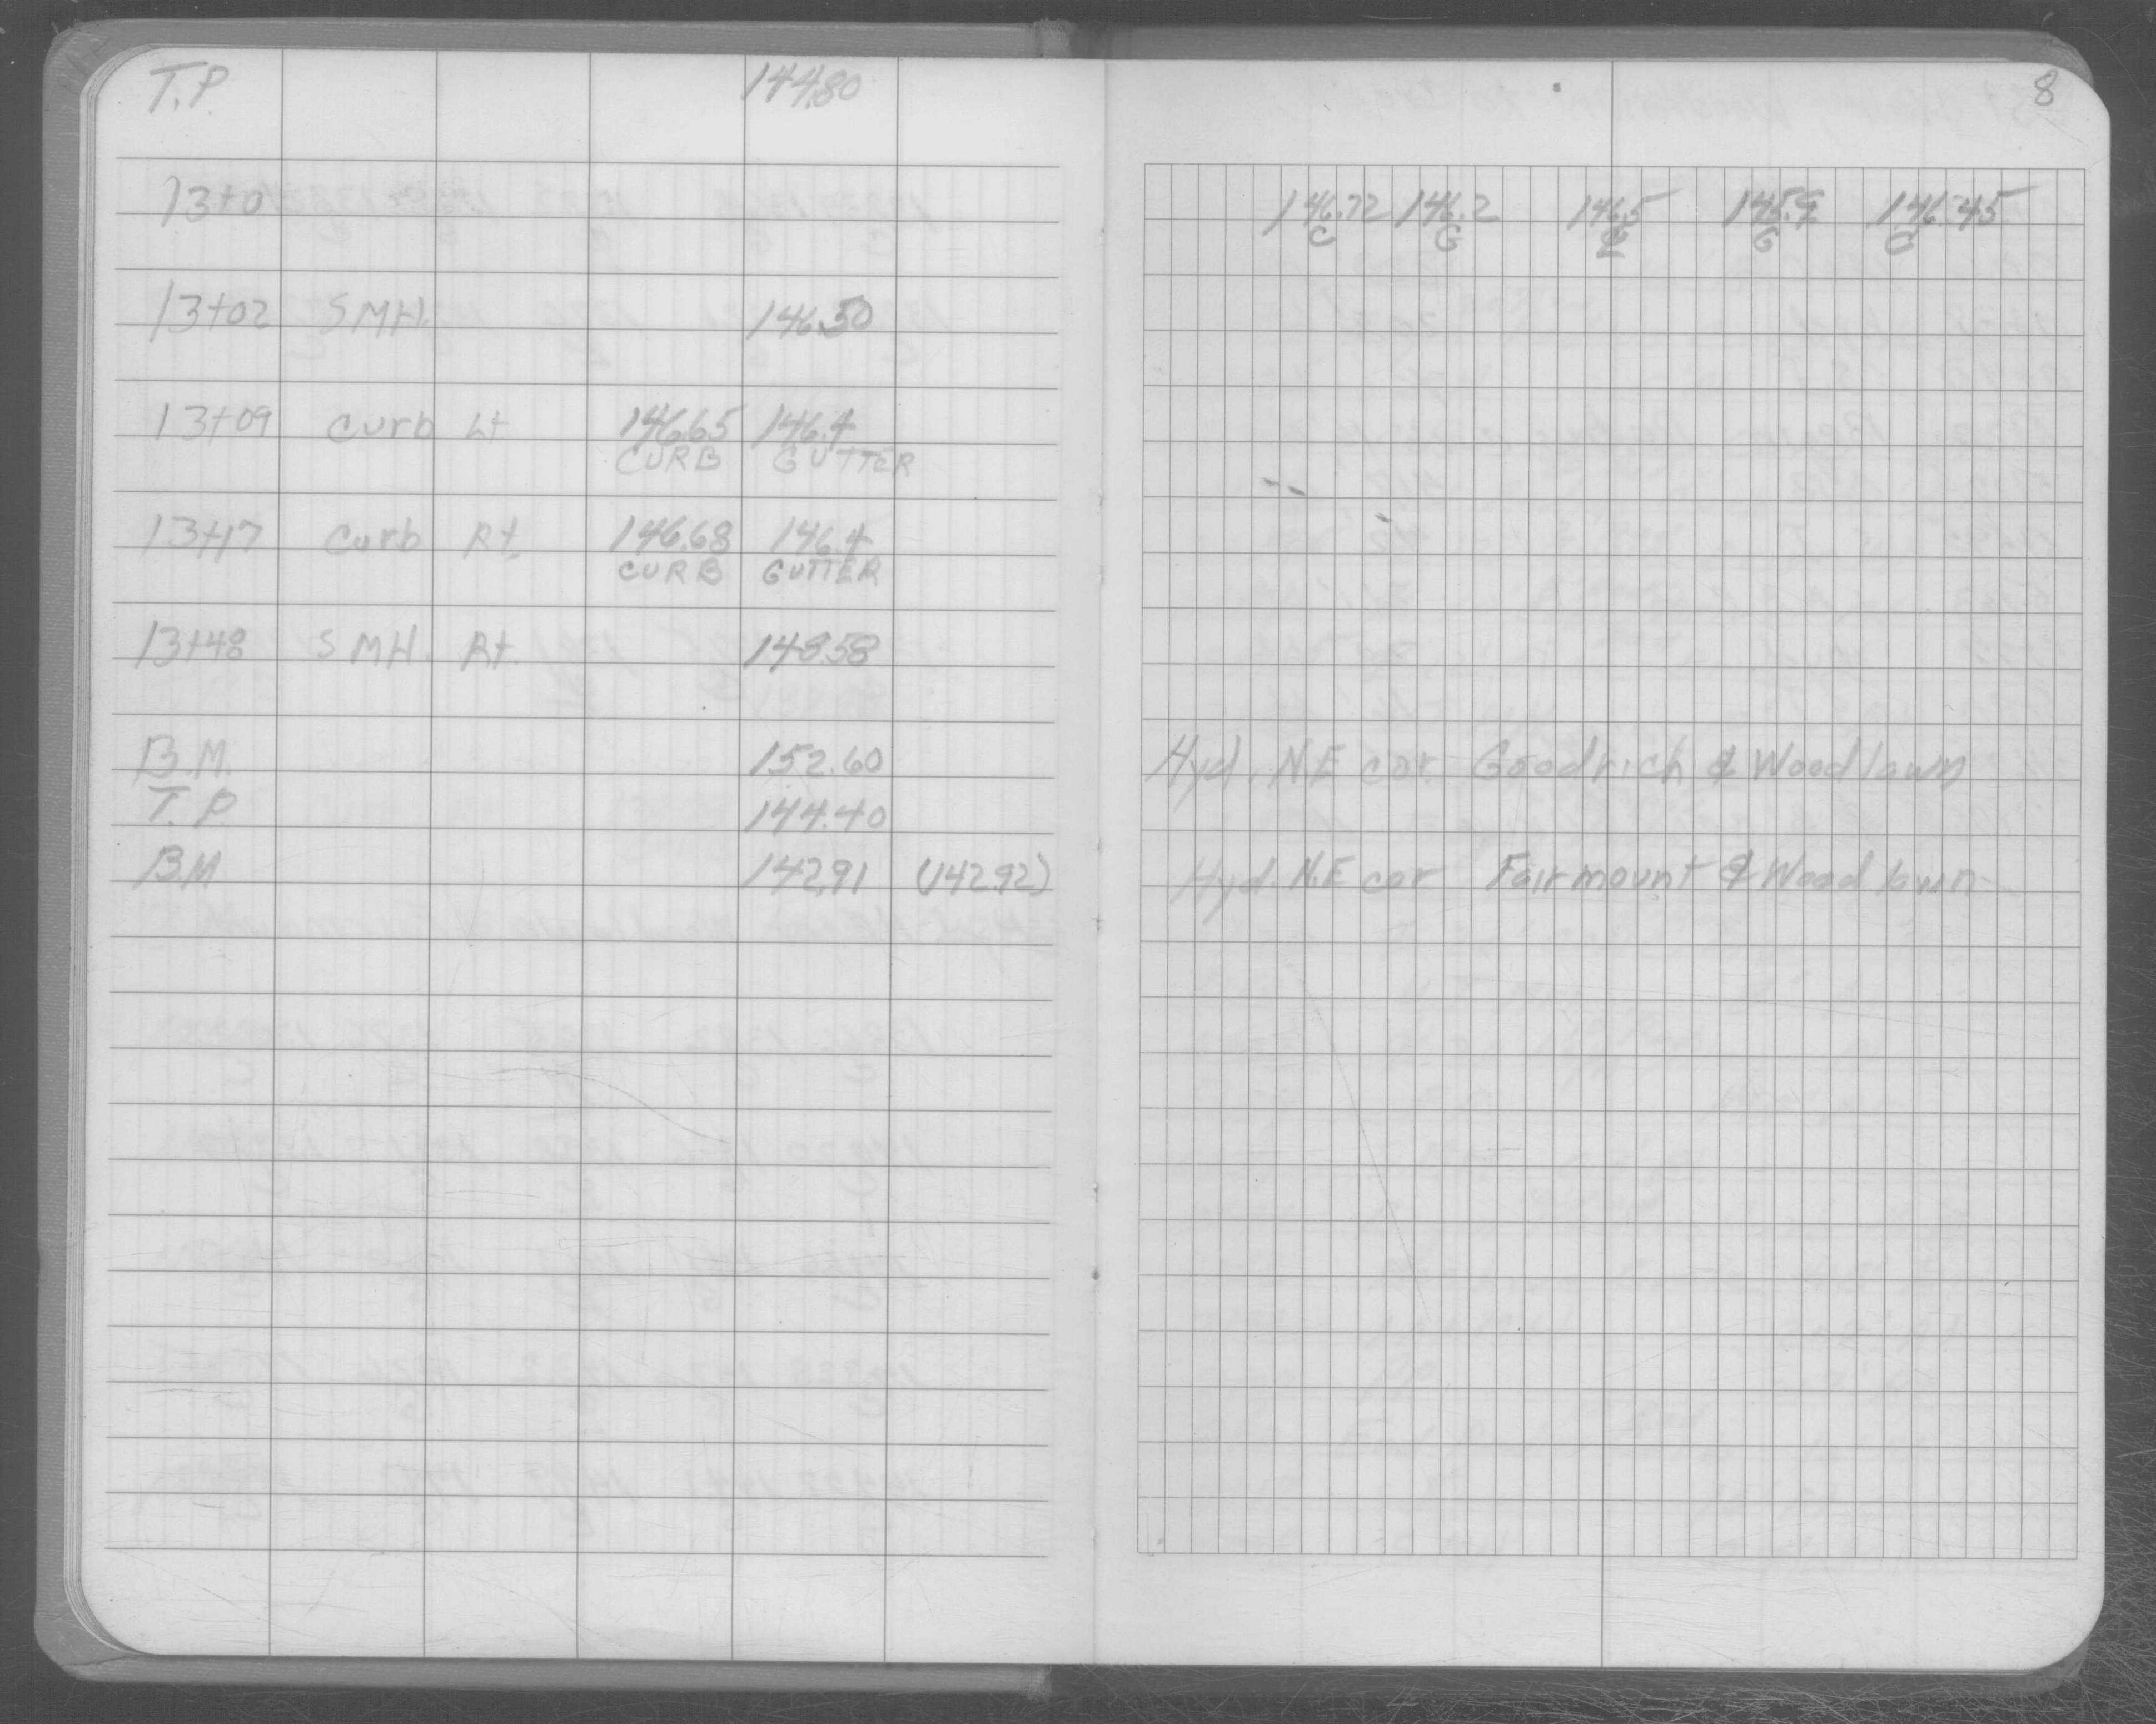 T.P. 144.80
8
13+0 146.72 146.2 146.5 145.9 146.45
C G ℄ G C
13+02 SMH. 146.50
13+09 Curb Lt 146.65 146.4
CURB GUTTER
13+17 Curb Rt. 146.68 146.4
CURB GUTTER
13+48 SMH. Rt. 148.58
B.M. 152.60 Hyd. N.E cor. Goodrich & Woodlawn
T.P. 144.40
B.M 142.91 (142.92) Hyd. N.E cor Fairmount & Woodlawn